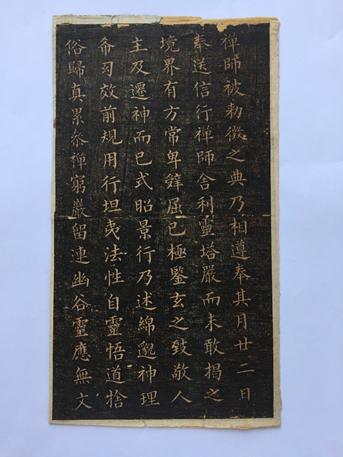 禅師被勅徵之典乃相遵奉其月廿二日
奉送信行禅師舍利靈塔嚴而未敢揭之
境界有方常卑辭屈已極鑒玄之致敬人
主及遷神而已式昭景行乃述綿邈神理
命勾效前規用行坦夷法性自靈悟道捨
俗歸真累叅禅窮巖留連幽谷靈應無文